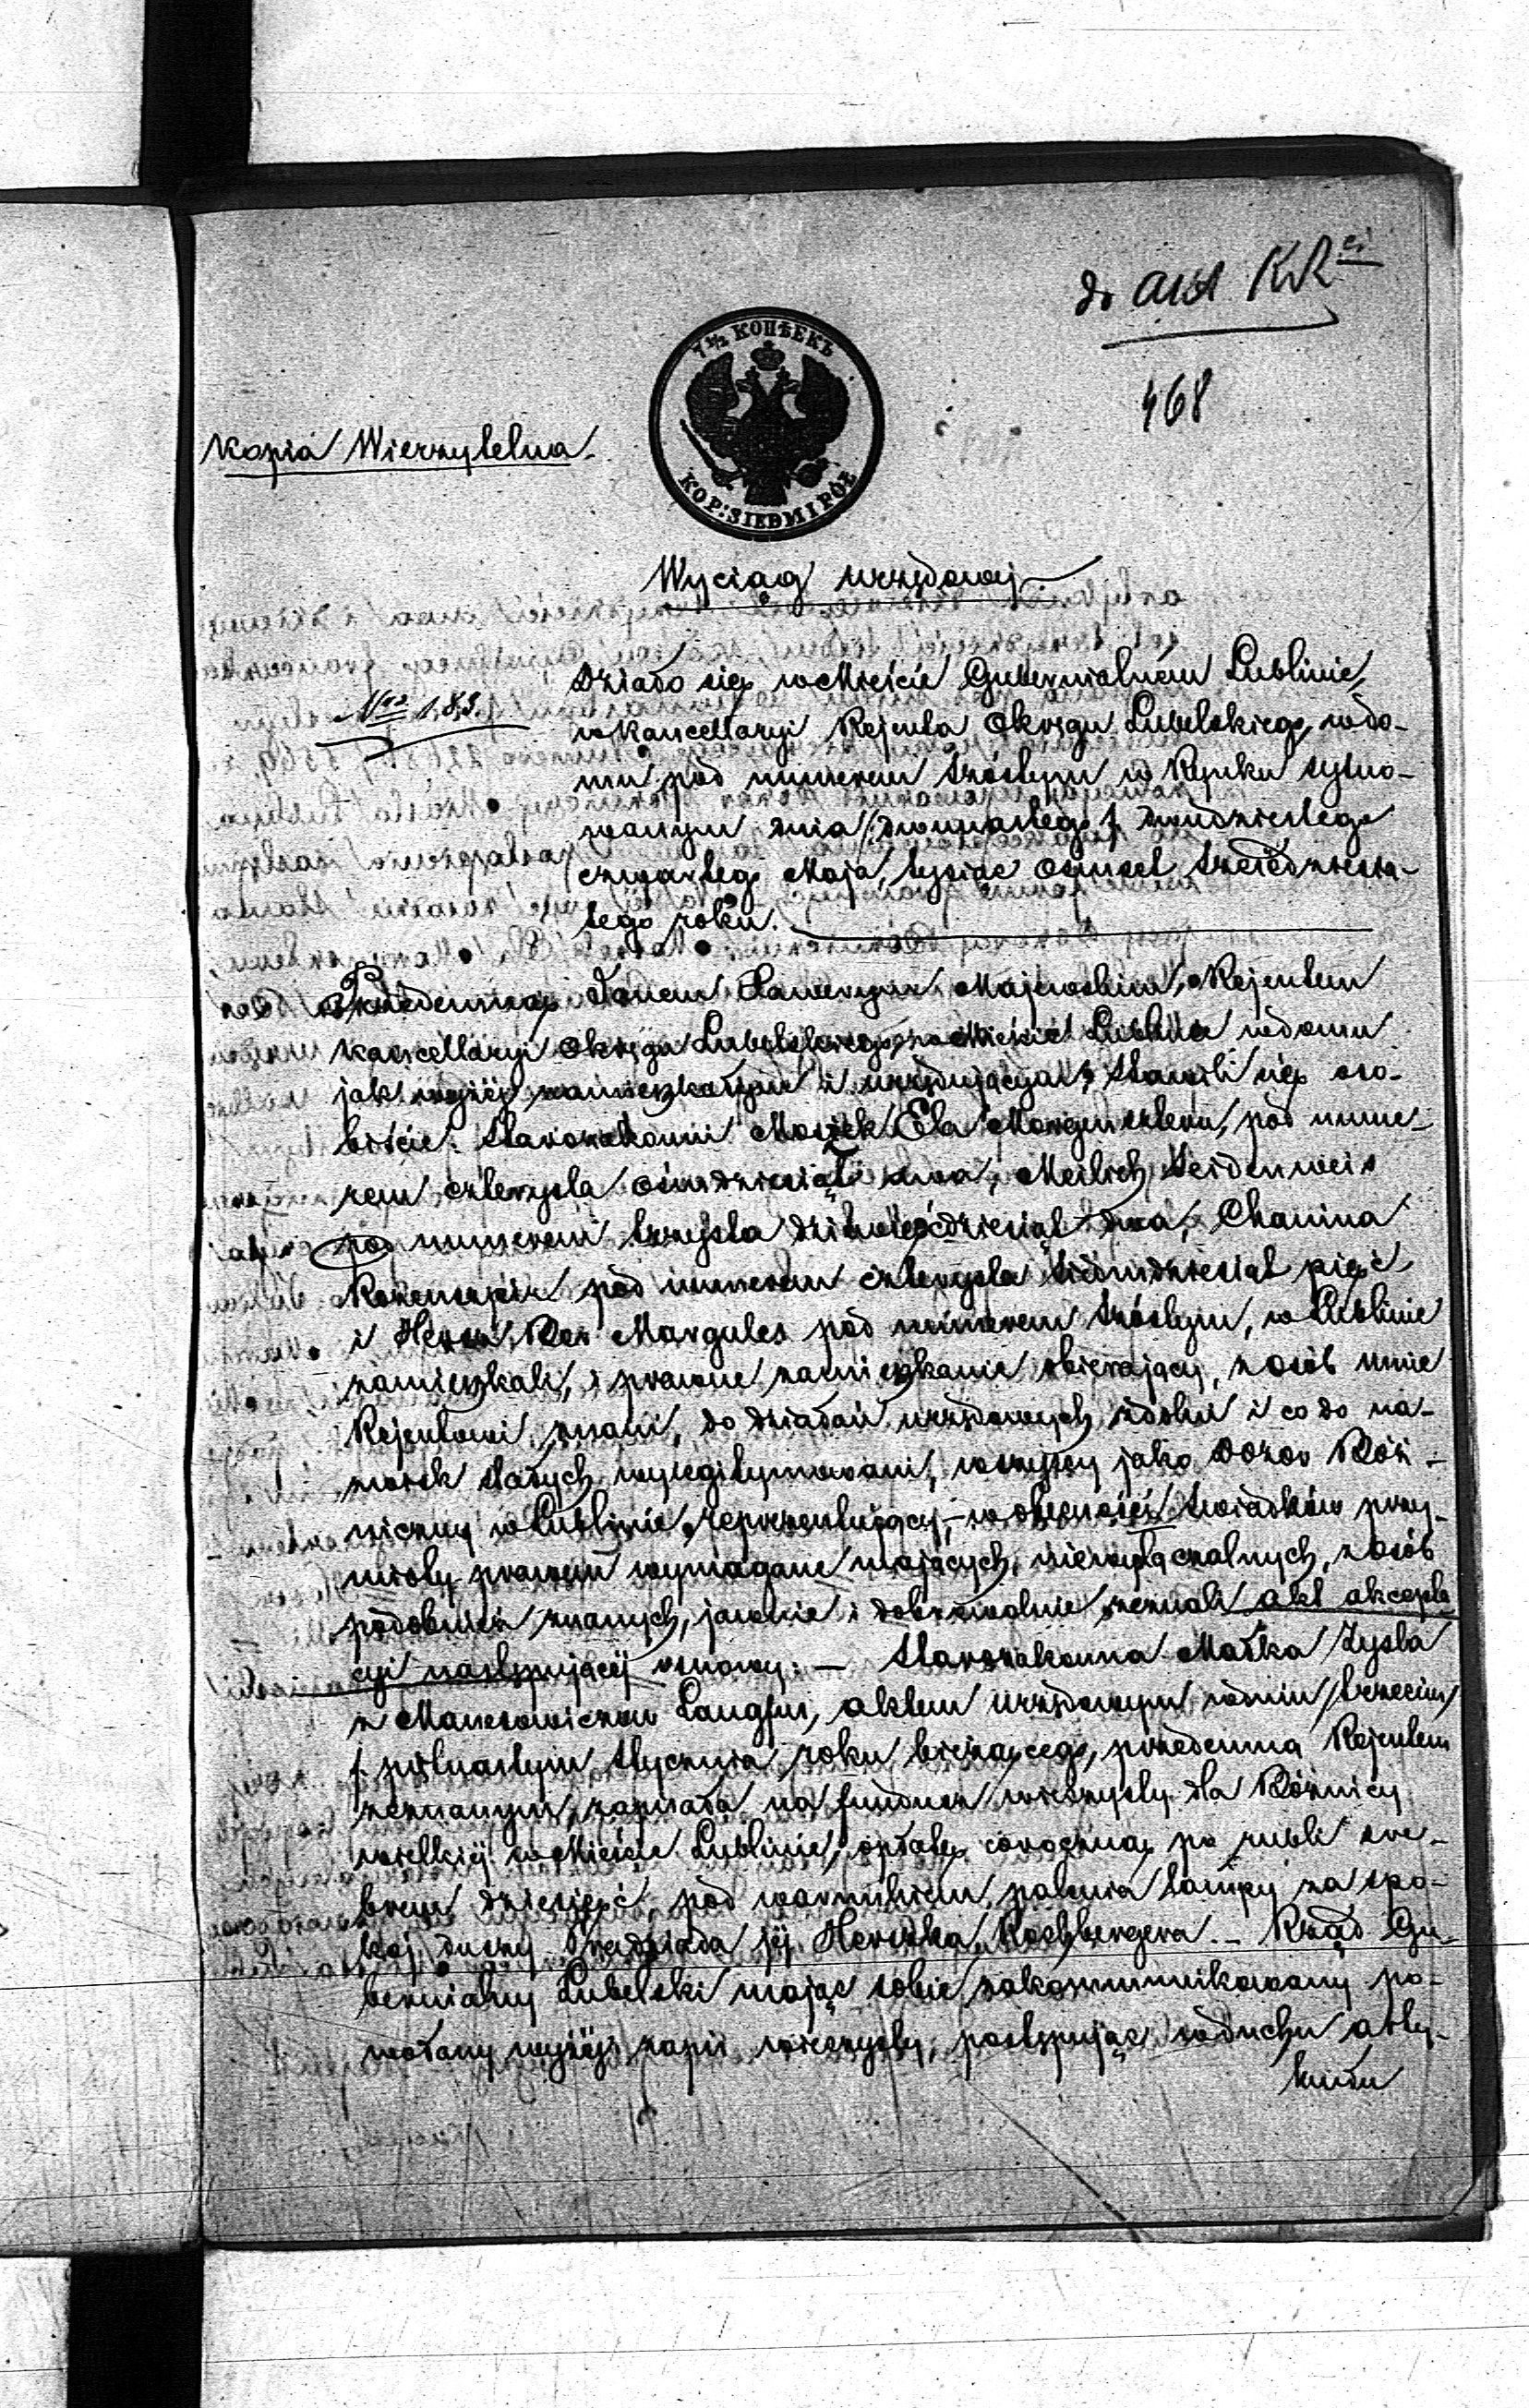 do akt KR ei
468
7 1/2 КОПѢЕКЪ
KOP: SIEDM I PÓŁ
Kopia Wierzytelna.
Wyciąg urzędowy
Nro 183.
Działo się w Mieście Gubernialném Lublinie,
w Kancellaryi Rejenta Okręgu Lubelskiego, w do-
mu pod numerem szóstym w Rynku sytuo-
wanym dnia /:dwunastego:/ dwudziestego
czwartego Maja, tysiąc ośmset sześćdziesią-
tego roku.
Przedemną Janem Majewskim, Rejentem
Kancellaryi Okręgu Lubelskiego, w Mieście Lublinie w domu
jak wyżéj zamieszkałym i urzędującym, stawili się oso-
biście: Starozakonni Moszek Ela Morgensztern, pod nume-
rem czterysta ośmdziesiąt dwa, Meilich Seidenweis
pod numerem trzysta dziewięćdziesiąt dwa, Chanina
Rozenszjein pod numerem czterysta siedmdziesiąt pięć
i Herszk Ber Margules pod numerem szóstym, w Lublinie
zamieszkali, i prawne zamieszkanie obierający, z osób mnie
Rejentowi znani, do działań urzędowych zdolni i co do na-
zwisk stałych wylegitymowani, wszyscy jako Dozór Bóż-
niczny w Lublinie reprezentujący, – w obecności świadków przy-
mioty prawem wymagane mających, niewyłączalnych, z osób
podobnież znanych, jawnie i dobrowolnie zeznali akt akcepta
cyi następującéj osnowy: – Starozakonna Małka Zysla
z Manesowiczów Langfus, aktem urzędowym w dniu /trzecim/
piętnastym Stycznia roku bieżącego, przedemną Rejentem
zeznanym, zapisała na fundusz wieczysty dla Bóżnicy
wielkiéj w Mieście Lublinie, opłatę coroczną po rubli sre-
brem dziesięć, pod warunkiem palenia lampy za spo-
kój duszy pradziada jéj Herszka Rochbergera. – Rząd Gu-
bernialny Lubelski mając sobie zakommunikowany po-
wołany wyżéj zapis wieczysty, postępując w duchu arty-
kułu